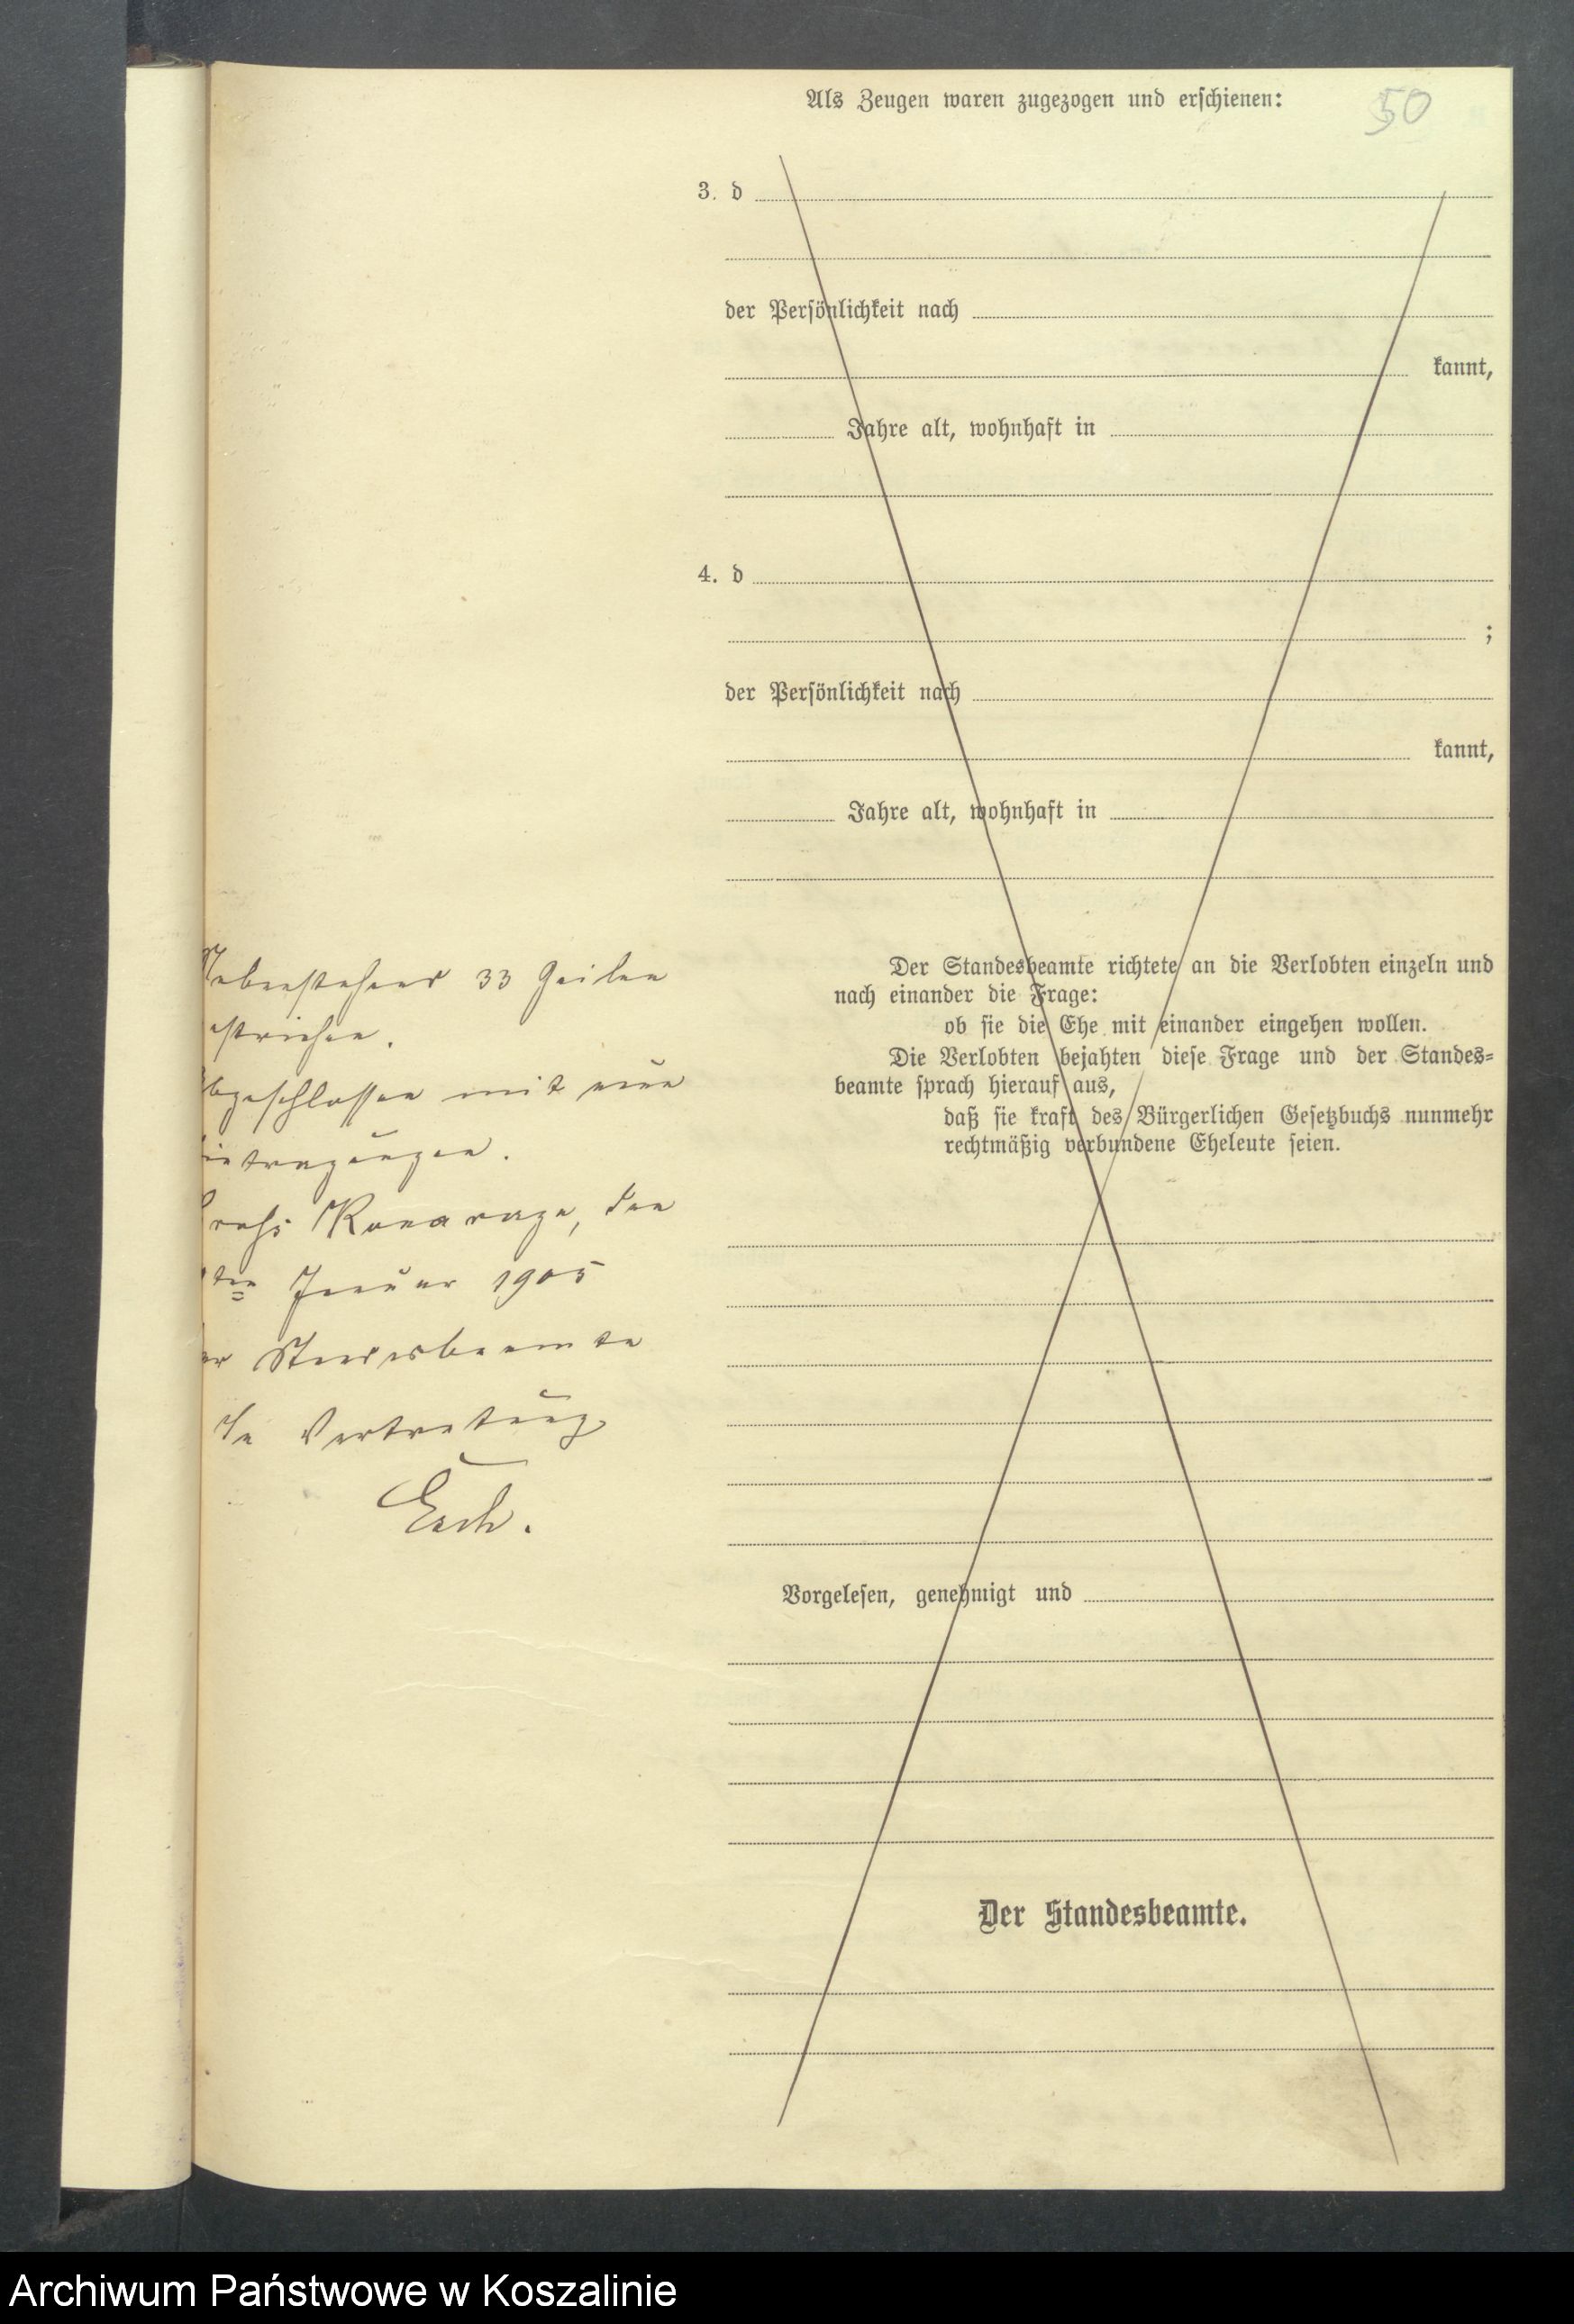 Als Zeugen waren zugezogen und erschienen:
50
3. d
der Persönlichkeit nach
kannt,
Jahre alt, wohnhaft in
4. d
;
der Persönlichkeit nach
kannt,
Jahre alt, wohnhaft in
Nebenstehend 33 Zeilen
estrichen.
bgeschlossen mit neun
intragungen.
den
ten Januar 1905
er Standesbeamte
In Vertretung
Esch.
Der Standesbeamte richtete an die Verlobten einzeln und
nach einander die Frage:
ob sie die Ehe mit einander eingehen wollen.
Die Verlobten bejahten diese Frage und der Standes=
beamte sprach hierauf aus,
daß sie kraft des Bürgerlichen Gesetzbuchs nunmehr
rechtmäßig verbundene Eheleute seien.
Vorgelesen, genehmigt und
Der Standesbeamte.
Archiwum Państwowe w Koszalinie